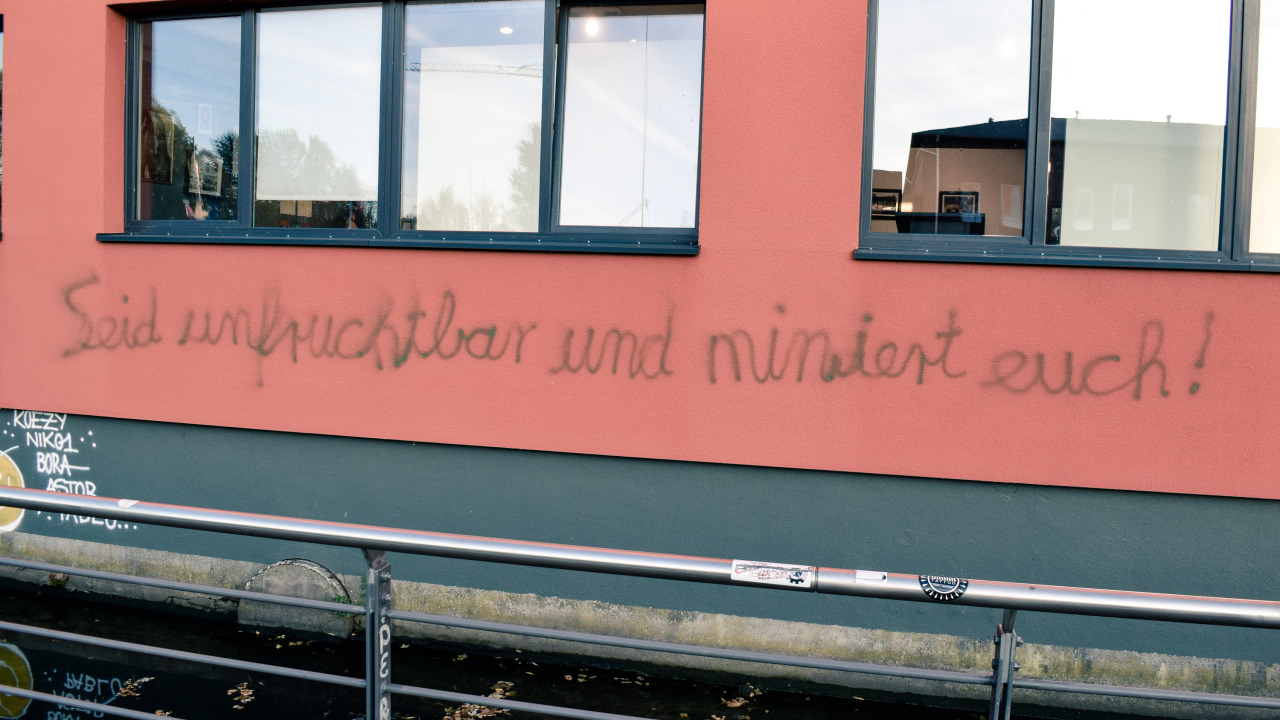 Seid unfruchtbar und miniert euch!
KOEZY
NIKO1
BORA
ASTOR
PABLO...